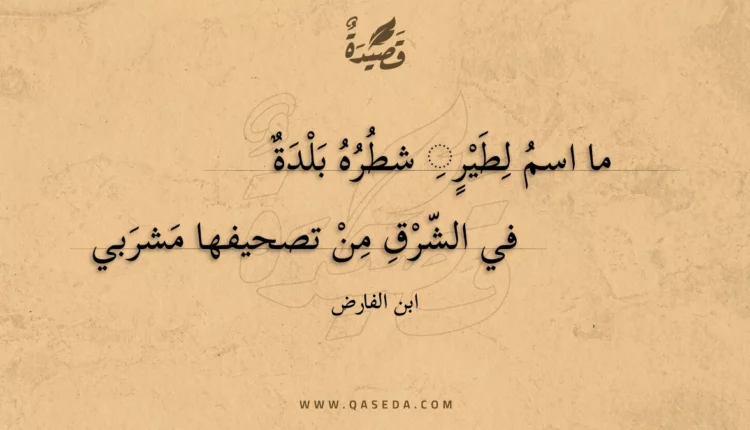 قَصِيدَةٌ
ما اسمُ لِطَيْرٍ ِ شطُرُهُ بَلْدَةٌ
في الشّرْقِ مِنْ تصحيفها مَشرَبي
ابن الفارض
WWW.QASEDA.COM